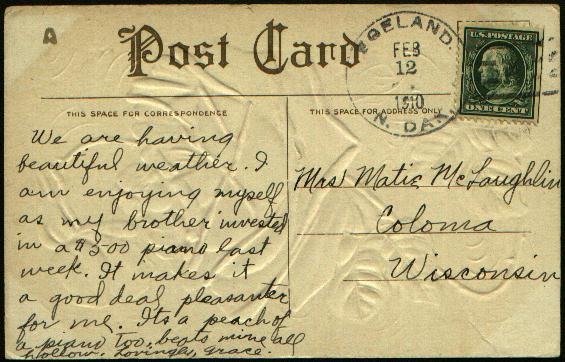 A
Post Card
EGELAND
FEB
12
1910
N. DAK.
U.S. POSTAGE
ONE CENT
THIS SPACE FOR CORRESPONDENCE
THIS SPACE FOR ADDRESS ONLY
We are having
beautiful weather. I
am enjoying myself
as my brother invested
in a $500 piano last
week. It makes it
a good deal pleasanter
for me. Its a peach of
a piano too, beats mine all
hollow. Lovingly, Grace.
Mrs Matie McLaughlin
Coloma
Wisconsin